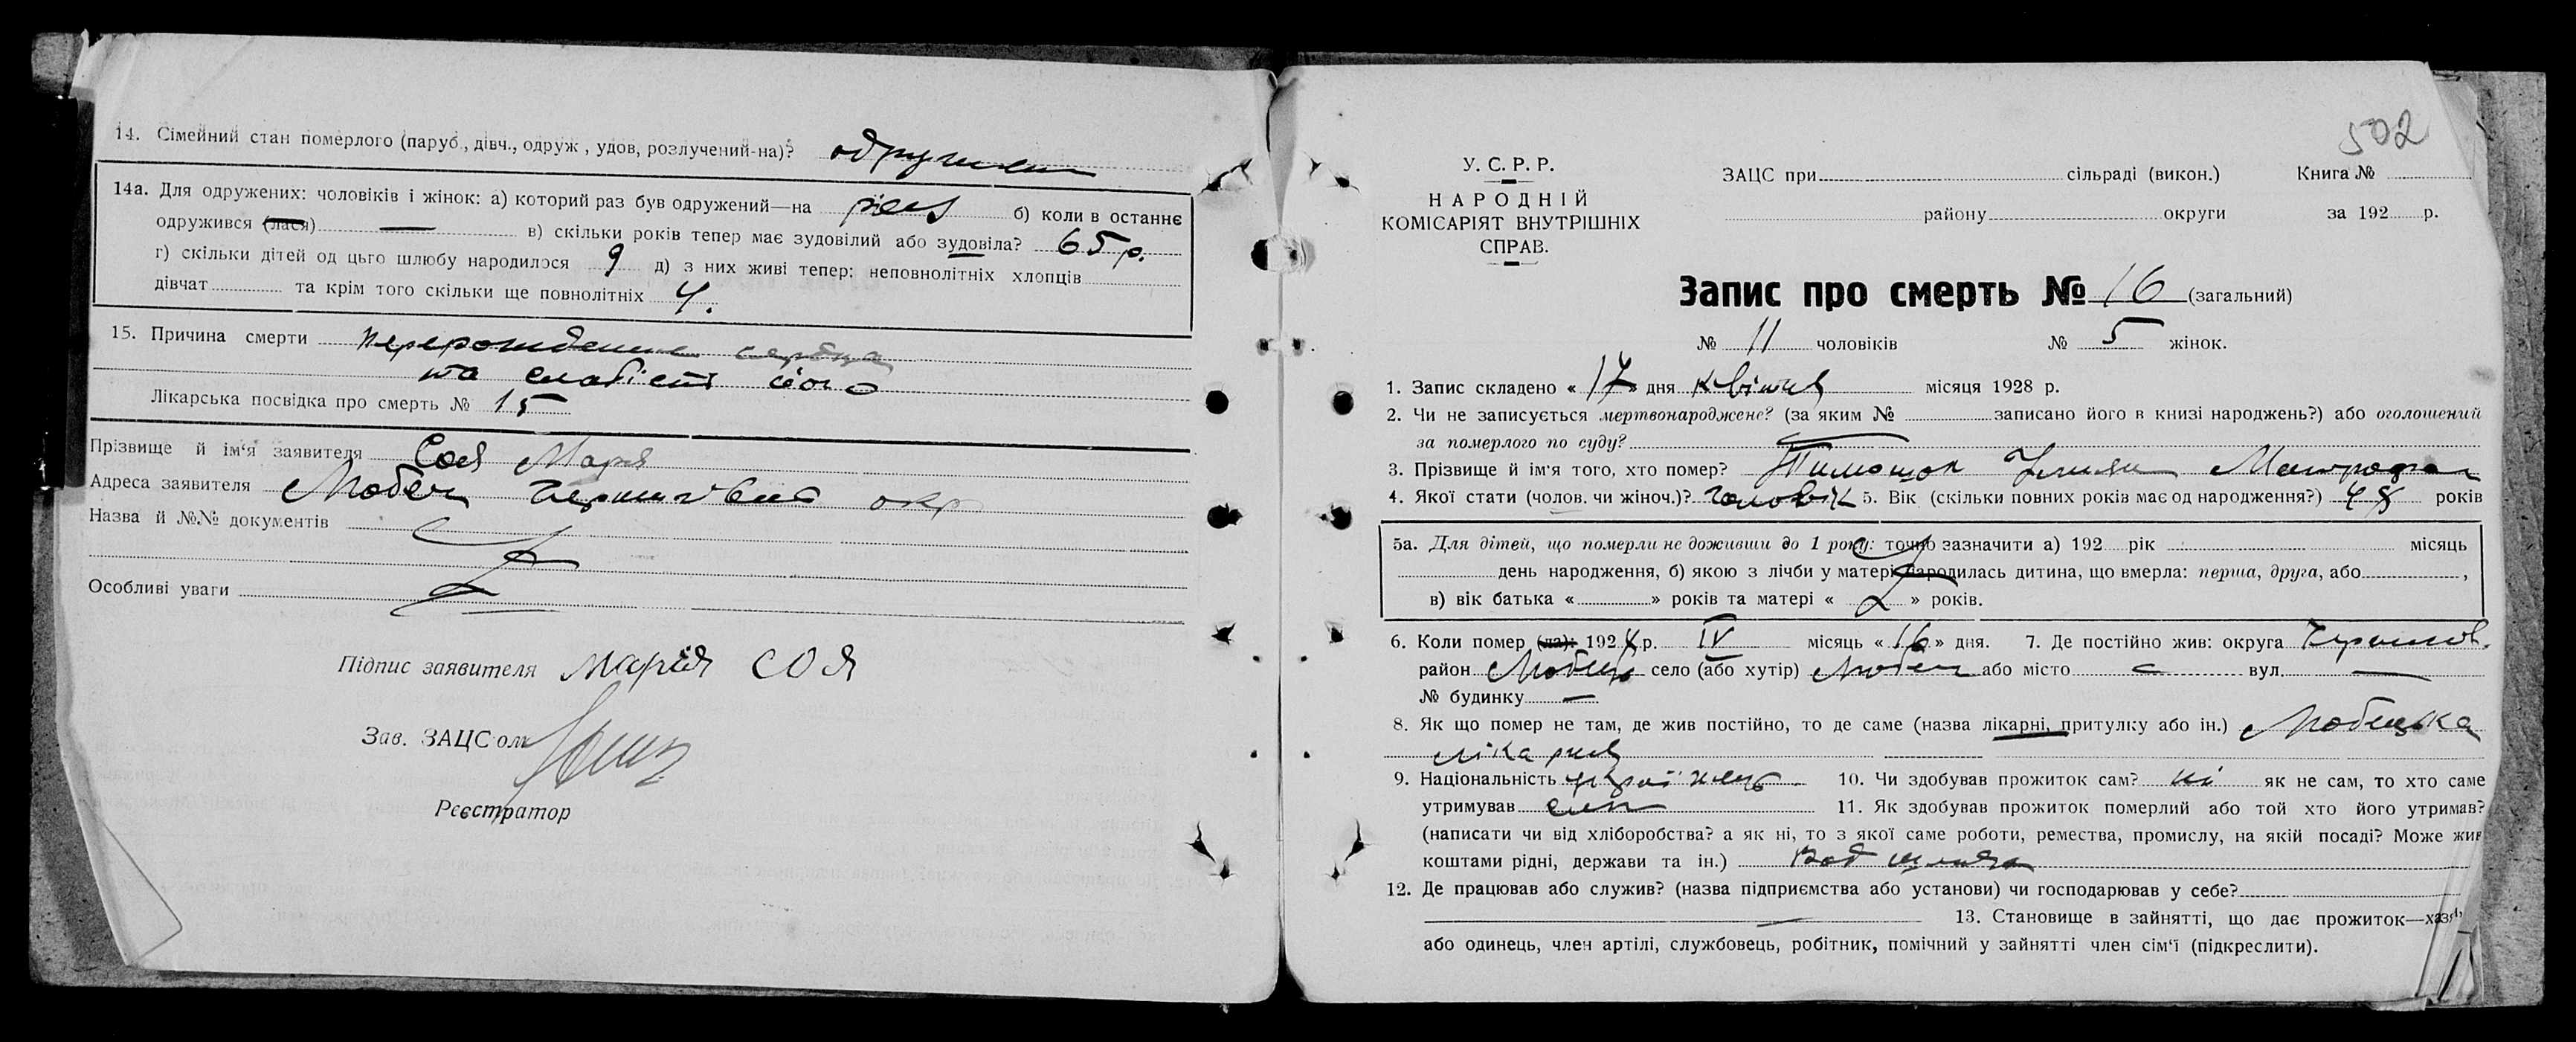 14. Сімейний стан померлого (паруб., дівч., одруж., удов, розлучений-на)? одружен
14а. Для одружених: чоловіків і жінок: а) которий раз був одружений—на раз б) коли в останнє
одружився (лася) — в) скільки років тепер має зудовілий або зудовіла? 65 р.
г) скільки дітей од цього шлюбу народилося 9 д) з них живі тепер: неповнолітніх хлопців
дівчат та крім того скільки ще повнолітніх 4.
15. Причина смерти перерождение сердца
та слабість його
Лікарська посвідка про смерть № 15
Прізвище й ім'я заявителя Соя Марія
Адреса заявителя Любеч Чернигівської окр
Назва й №№ документів
Особливі уваги
Підпис заявителя Марія Соя
Зав. ЗАЦС'ом
Реєстратор
502
У. С. Р. Р.
НАРОДНІЙ
КОМІСАРІЯТ ВНУТРІШНІХ
СПРАВ.
ЗАЦС при сільраді (викон.) Книга №
району округи за 192 р.
Запис про смерть № 16 (загальний)
№ 11 чоловіків № 5 жінок.
1. Запис складено « 17 » дня квітня місяця 1928 р.
2. Чи не записується мертвонароджене? (за яким № записано його в книзі народжень?) або оголошений
за померлого по суду? —
3. Прізвище й ім'я того, хто помер? Тимошок
4. Якої стати (чолов. чи жіноч.)? чоловік 5. Вік (скільки повних років має од народження?) років
5а. Для дітей, що померли не доживши до 1 року: точно зазначити а) 192 рік місяць
день народження, б) якою з лічби у матері народилась дитина, що вмерла: перша, друга, або ,
в) вік батька « » років та матері « » років.
6. Коли помер (ла): 1928 р. IV місяць « 16 » дня. 7. Де постійно жив: округа Чернигів.
район Любець село (або хутір) Любеч або місто — вул. —
№ будинку —
8. Як що помер не там, де жив постійно, то де саме (назва лікарні, притулку або ін.) Любецька
лікарня
9. Національність українець 10. Чи здобував прожиток сам? ні як не сам, то хто саме
утримував син 11. Як здобував прожиток померлий або той хто його утримав?
(написати чи від хліборобства? а як ні, то з якої саме роботи, ремества, промислу, на якій посаді? Може жив
коштами рідні, держави та ін.)
12. Де працював або служив? (назва підприємства або установи) чи господарював у себе?
— 13. Становище в зайнятті, що дає прожиток—хазяїн
або одинець, член артілі, службовець, робітник, помічний у зайнятті член сім'ї (підкреслити).